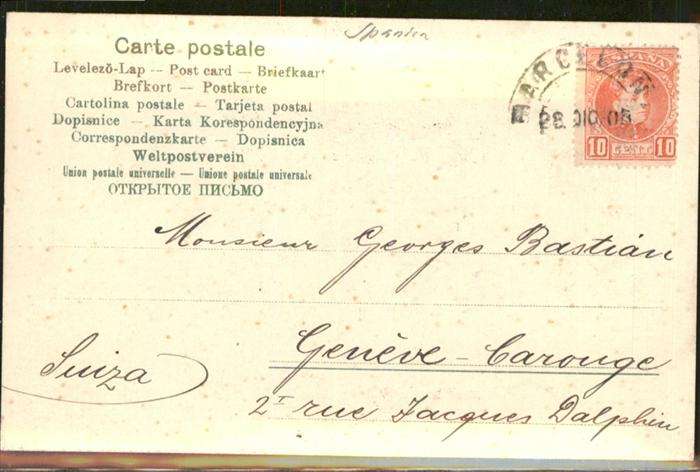 Spanien
Carte postale
Levelezŏ-Lap — Post card — Briefkaart
Brefkort — Postkarte
Cartolina postale — Tarjeta postal
Dopisnice — Karta Korespondencyjna
Correspondenzkarte — Dopisnica
Weltpostverein
Union postale universelle — Unione postale universale
ОТКРЫТОЕ ПИСЬМО
BARCELON
28 DIC 05
ESPAÑA
10 CENT. 10
Monsieur Georges Bastián
Genève-Carouge
Suiza
2I rue Jacques Dalphin